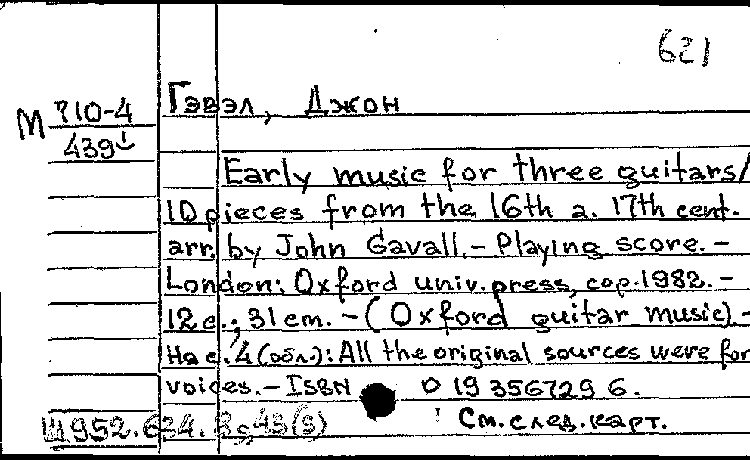 621
М Р10-4
439
Гэвэл, Джон
Early music for three guitars/
10 pieces from the 16th a. 17th cent.
arr. by John Gavall.- Playing score.-
London: Oxford univ. press, cop. 1982.-
12 c.; 31 cm. -(Oxford guitar music).-
На с. 4 (обл.): All the original sources were for
voices.- ISBN 0 19 356729 6.
Ш952.634.
См. след. карт.